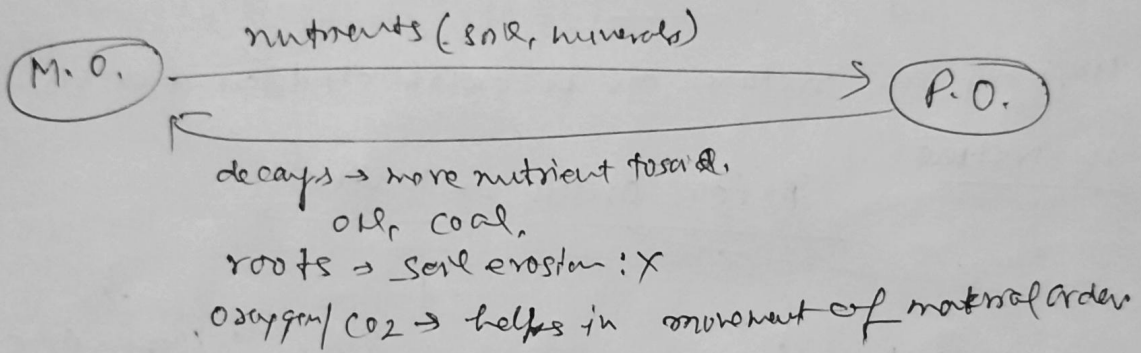 nutrients (soil, minerals)
M. O.
P. O.
decays → more nutrient to soil.
oil, coal,
roots → soil erosion : X
Oxygen/CO2 → helps in movement of material order